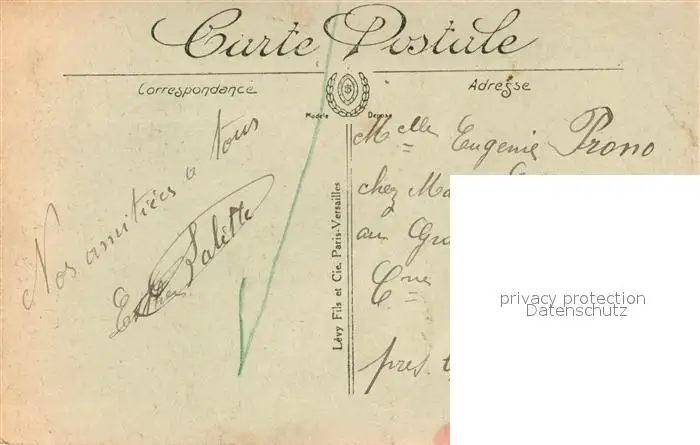 Carte Postale
Correspondance
Adresse
Modèle Déposé
Nos amitiées a tous
Esther Salette
Lévy Fils et Cie, Paris-Versailles
Melle Eugénie Prono
chez Ma
au Gra
Cne
près
privacy protection
Datenschutz